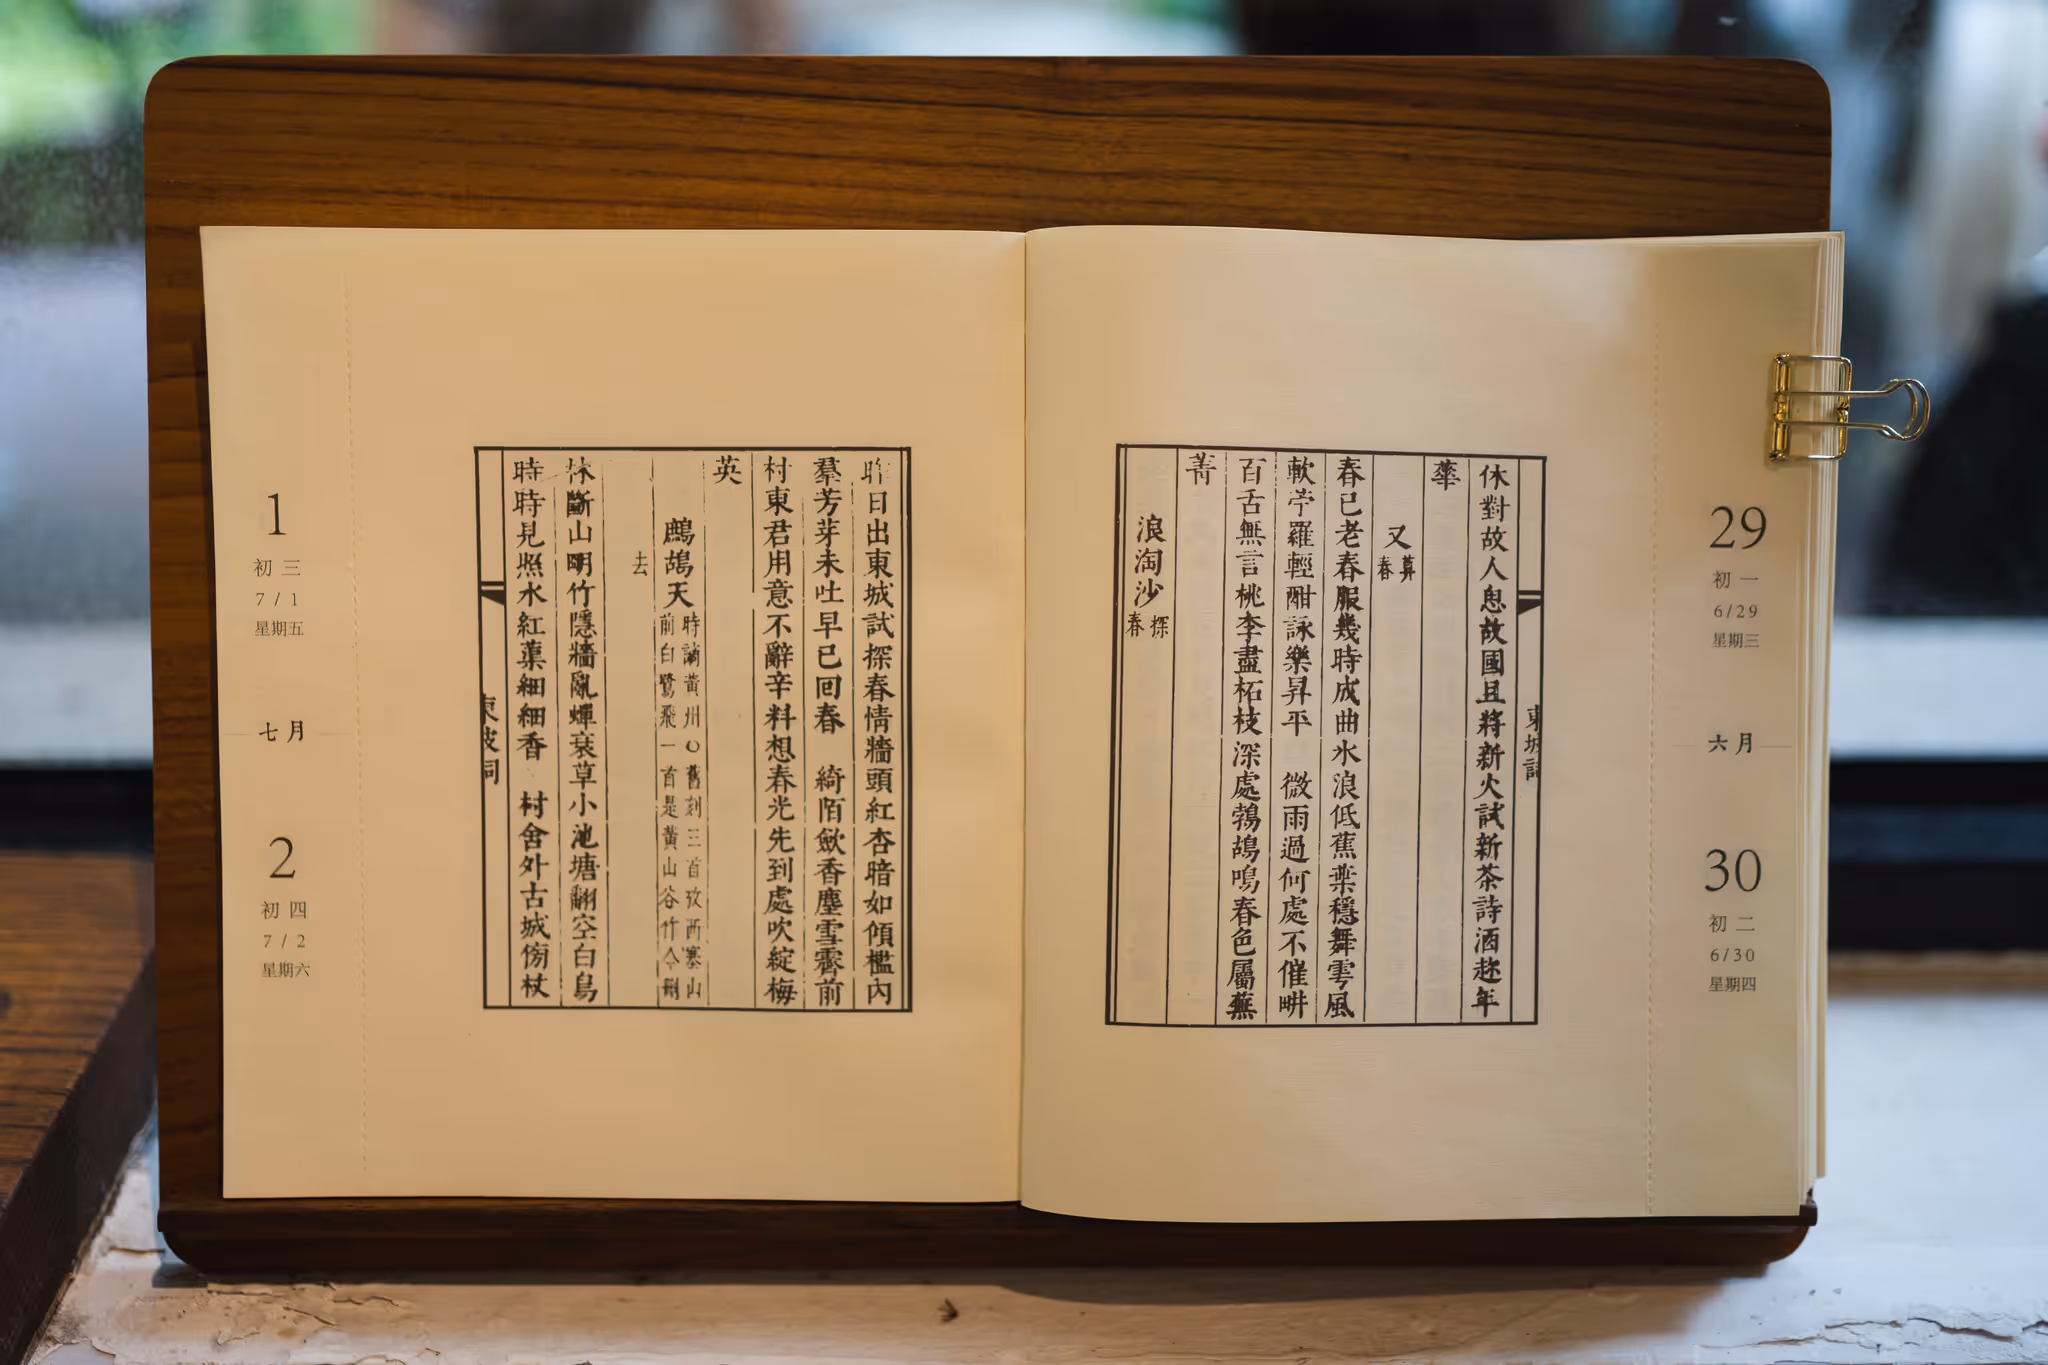 29
初一
6/29
星期三
六月
30
初二
6/30
星期四
休對故人思故國且將新火試新茶詩酒趂年
華
又
暮春
春已老春服幾時成曲水浪低蕉葉穩舞雩風
軟苧羅輕酣詠樂昇平　微雨過何處不催畊
百舌無言桃李盡柘枝深處鵓鴣鳴春色屬蕪
菁
浪淘沙
探春
昨日出東城試探春情牆頭紅杏暗如傾檻內
羣芳芽未吐早已回春　綺陌歛香塵雪霽前
村東君用意不辭辛料想春光先到處吹綻梅
英
鷓鴣天
時謫黃州○舊刻三首攷西塞山
前白鷺飛一首是黃山谷作今刪
去
林斷山明竹隱牆亂蟬衰草小池塘翻空白鳥
時時見照水紅蕖細細香　村舍外古城傍杖
東坡詞
1
初三
7/1
星期五
七月
2
初四
7/2
星期六